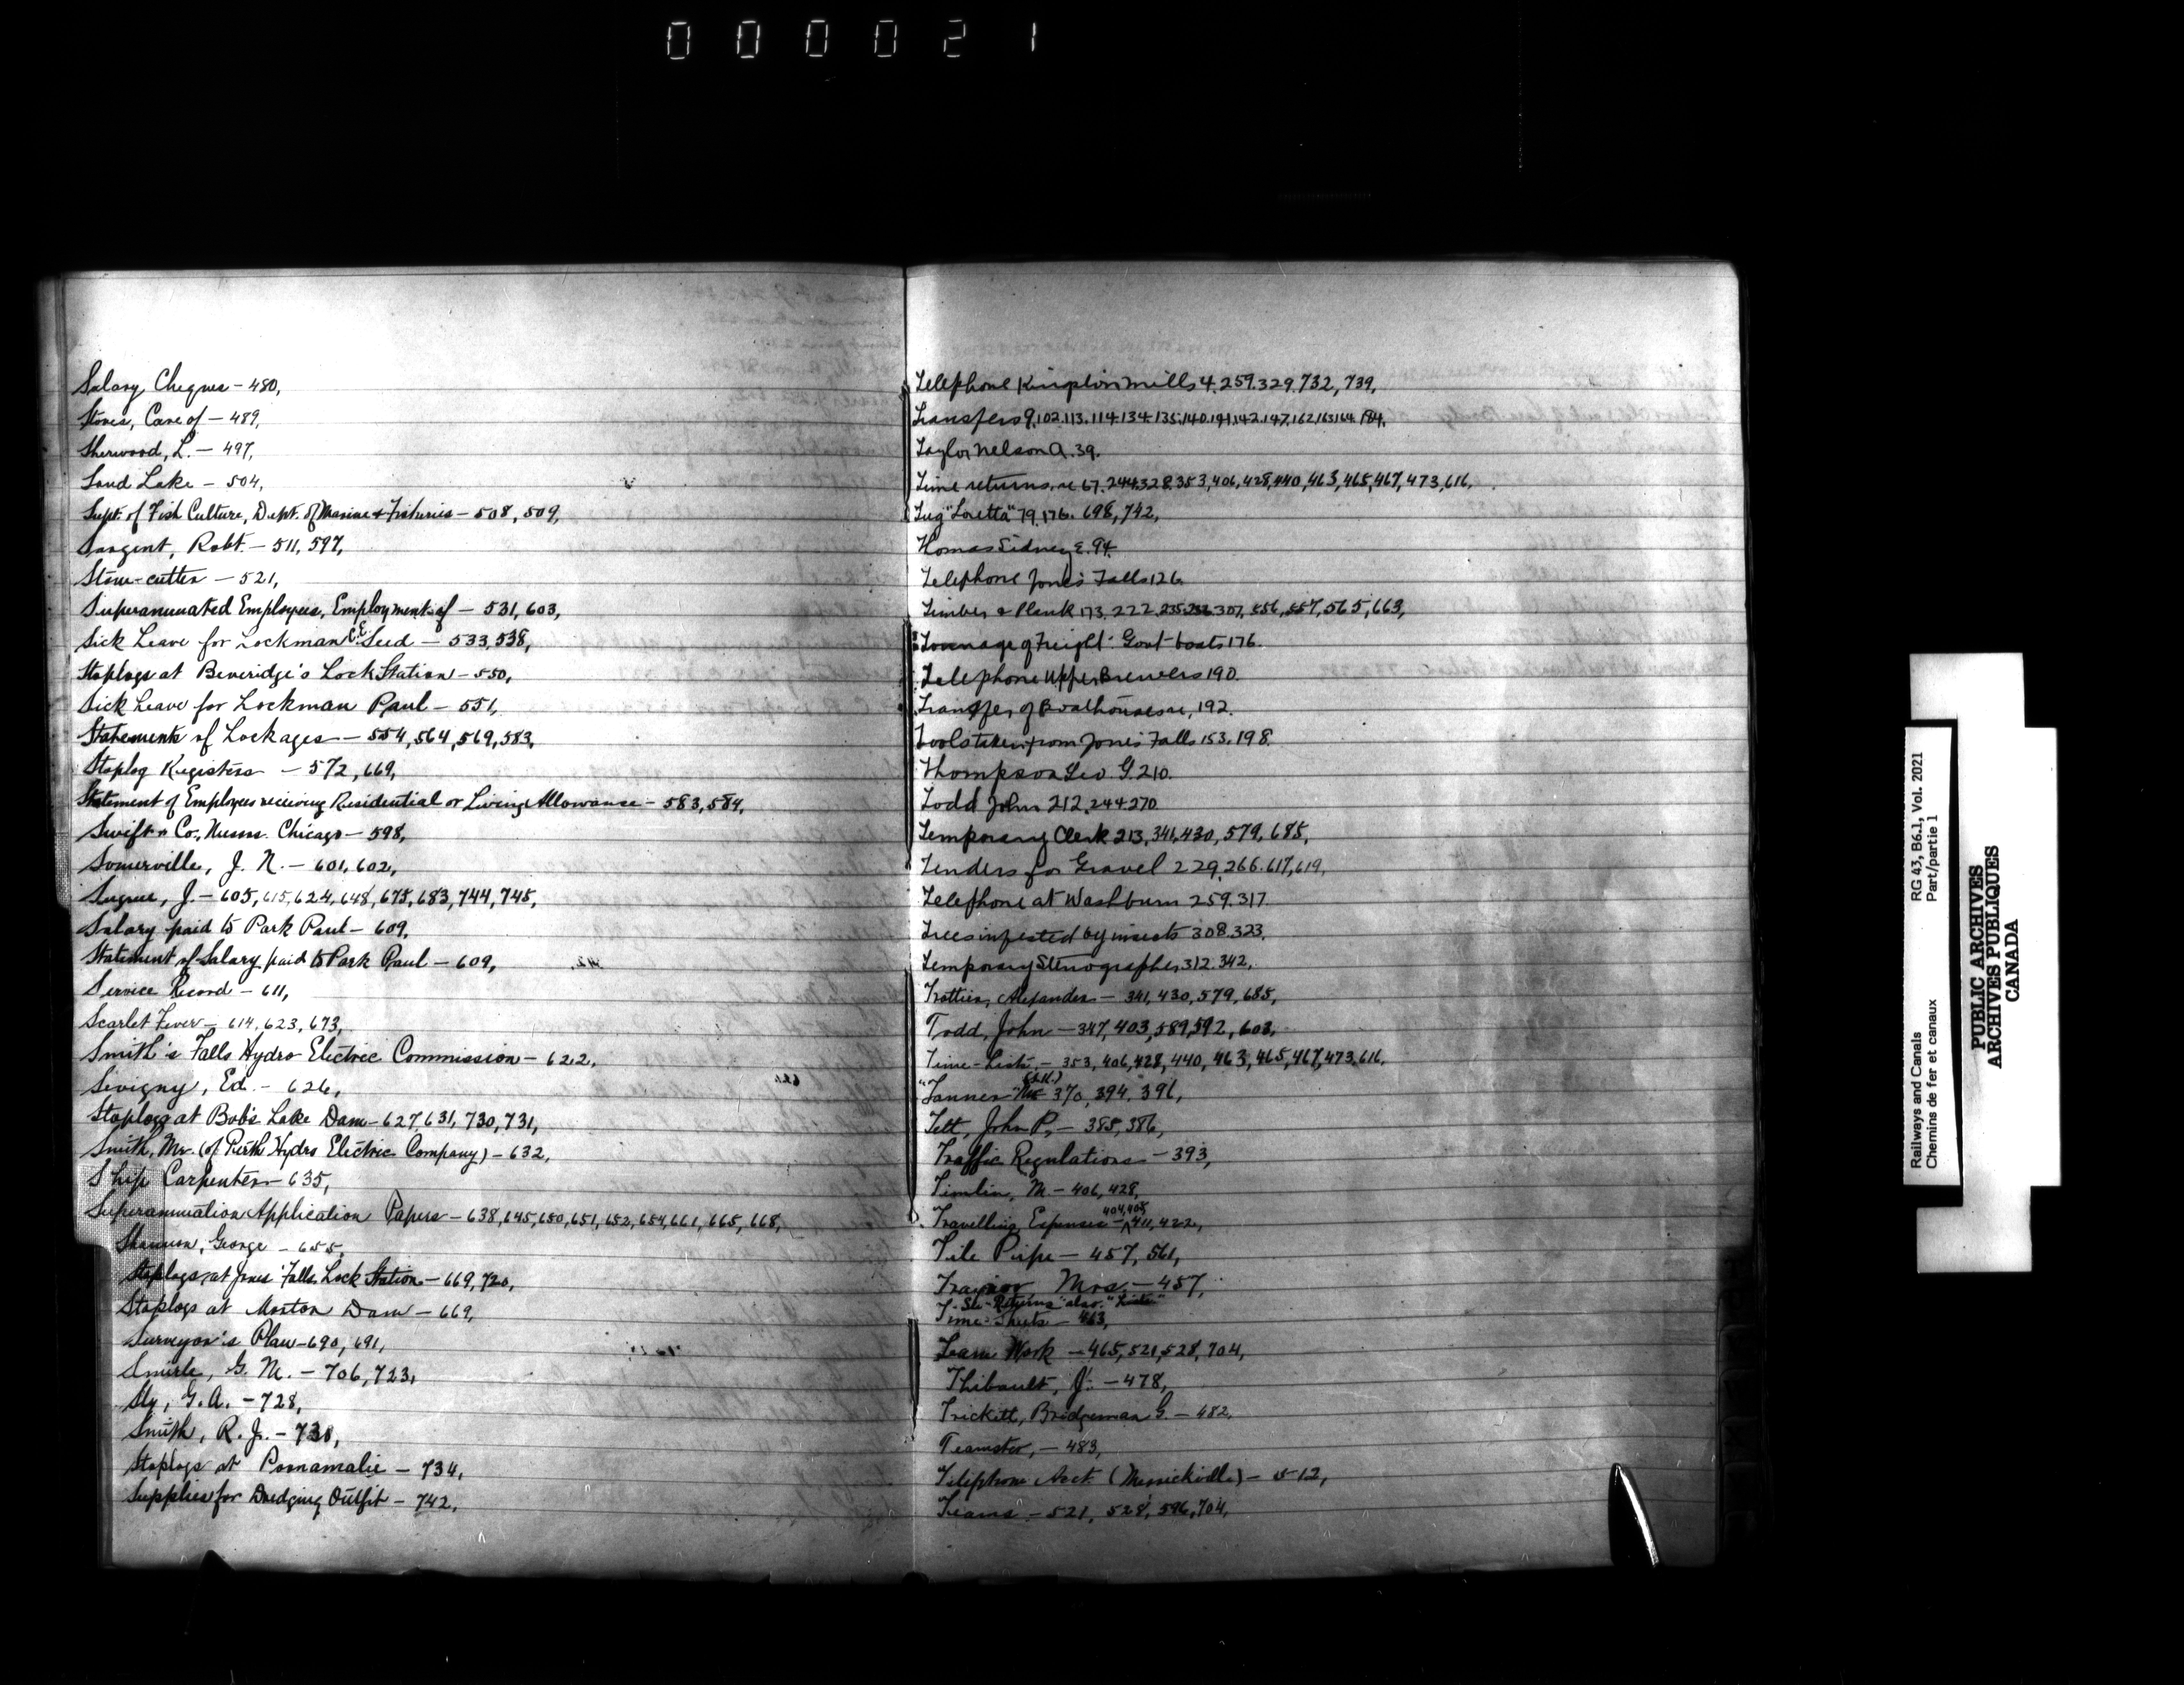 000021
Salary Cheques - 480,
Stores, Care of - 489,
Sherwood, L. - 497,
Sand Lake - 504,
Supt. of Fish Culture, Dept. of Marine & Fisheries - 508, 509,
Sargent, Robt. - 511, 597,
Stone-cutter - 521,
Superannuated Employees, Employment of - 531, 603,
Sick Leave for Lockman C.E. Seed - 533, 538,
Stoplogs at Beveridge's Lock Station - 550,
Sick Leave for Lockman Paul - 551,
Statements of Lockages - 554, 564, 569, 583,
Stoplog Registers - 572, 669,
Statement of Employees receiving Residential or Living Allowance - 583, 584,
Swift & Co., Chicago - 598,
Somerville, J. N. - 601, 602,
Sugrue, J. - 605, 615, 624, 648, 675, 683, 744, 745,
Salary paid to Park Paul - 609,
Statement of Salary paid to Park Paul - 609,
Service Record - 611,
Scarlet Fever - 614, 623, 673,
Smith's Falls Hydro Electric Commission - 622,
Sevigny, Ed. - 626,
Stoplogs at Bobs Lake Dam - 627 631, 730, 731,
Smith, Mr. (of Perth Hydro Electric Company) - 632,
Ship Carpenter - 635,
Superannuation Application Papers - 638, 645, 650, 651, 652, 654, 661, 665, 668,
Shannon, George - 655,
Stoplogs at Jones' Falls Lock Station - 669, 720,
Stoplogs at Morton Dam - 669,
Surveyor's Plan - 690, 691,
Smirle, G. M. - 706, 723,
Sly, G. A. - 728,
Smith, R. J. -
Stoplogs at Poonamalie - 734,
Supplies for Dredging Outfit - 742,
Telephone Kingston Mills 4. 259. 329, 732, 739,
Transfers 9, 102. 113. 114. 134. 135. 140. 141. 142. 147. 162. 163. 164. 184.
Taylor Nelson A. 39.
Time returns, re 67. 244. 328. 353, 406, 428, 440, 463, 465, 467, 473, 616,
Tug "Loretta" 79. 176. 698, 742,
Thomas Sidney E. 94.
Telephone Jones Falls 126.
Timber & Plank 173. 222. 235. 236. 307, 556, 557, 565, 663,
Tonnage of Freight. Govt boats 176.
Telephone Upper Brewers 190.
Transfer of Boathouses re, 192.
Tools taken from Jones Falls 153. 198.
Thompson Geo. G. 210.
Todd John 212. 244. 270
Temporary Clerk 213, 341, 430, 579, 685,
Tenders for Gravel 229. 266. 617, 619,
Telephone at Washburn 259. 317
Trees infested by insects 308. 323.
Temporary Stenographer 312. 342.
Trottier, Alexander - 341, 430, 579, 685,
Todd, John - 347, 403, 589, 592, 603,
Time-Lists - 353, 406, 428, 440, 463, 465, 467, 473, 616,
"Tanner" 370, 394, 391,
Tett, John P. - 385, 386,
Traffic Regulations - 393,
Timlin, M - 406, 428,
Travelling Expenses - 404, 405 411, 422,
Tile Pipe - 457, 561,
Traynor Mrs. - 457,
See "Returns" also "Lists"
Time-Sheets - 463,
Team Work - 465, 521, 528, 704,
Thibault, J. - 478,
Trickett, Bridgeman G. - 482,
Teamster, - 483,
Telephone Acct. (Merrickville) - 512,
Teams - 521, 528, 596, 704,
Railways and Canals RG 43, B6.1, Vol. 2021
Chemins de fer et canaux Part/partie 1
PUBLIC ARCHIVES
ARCHIVES PUBLIQUES
CANADA